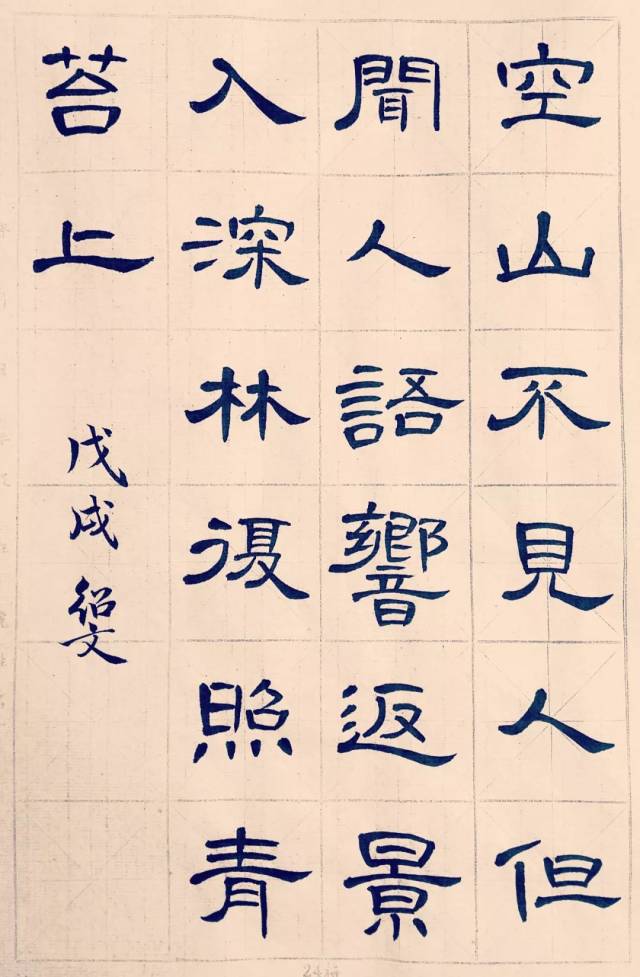 空山不見人但
聞人語響返景
入深林復照青
苔上
戊戌